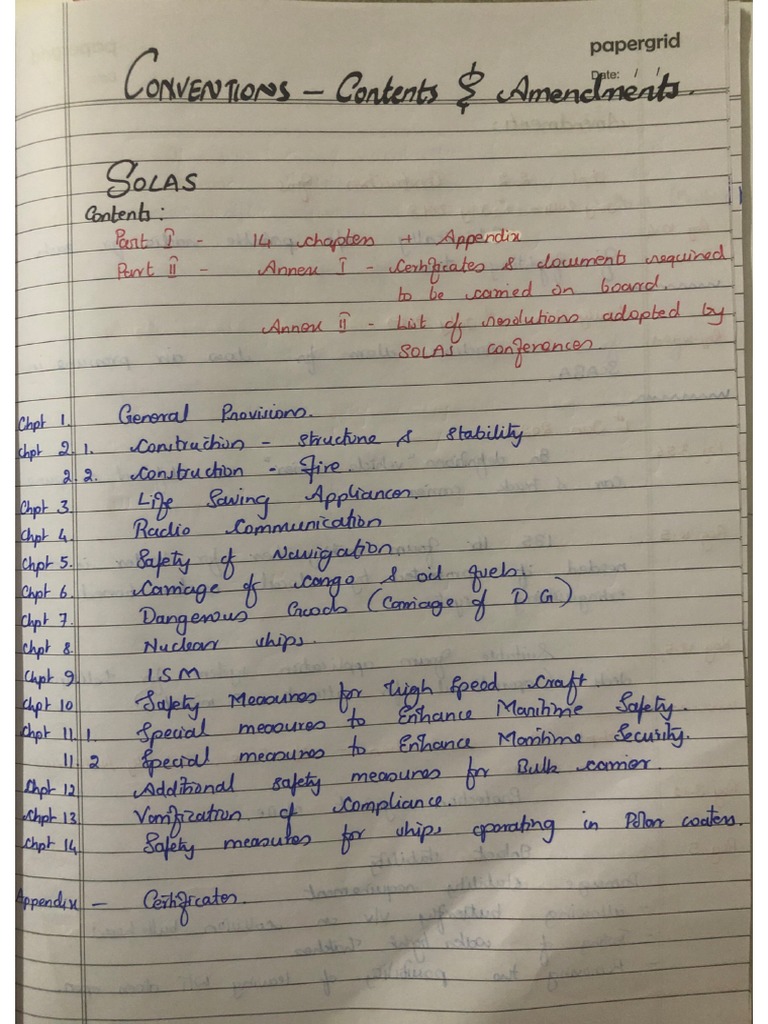 papergrid
Date: / /
CONVENTIONS – Contents & Amendments.
SOLAS
Contents:
Part I - 14 chapters + Appendix
Part II - Annex I - Certificates & documents required
to be carried on board.
Annex II - List of resolutions adopted by
SOLAS conferences.
Chpt 1. General Provisions.
Chpt 2. 1. Construction - Structure & Stability
2. 2. Construction - Fire.
Chpt 3. Life Saving Appliances.
Chpt 4. Radio Communication
Chpt 5. Safety of Navigation
Chpt 6. Carriage of cargo & oil fuels.
Chpt 7. Dangerous Goods (Carriage of DG)
Chpt 8. Nuclear ships.
Chpt 9 ISM
Chpt 10 Safety Measures for High Speed Craft.
Chpt 11. 1. Special measures to Enhance Maritime Safety.
11. 2 Special measures to Enhance Maritime Security.
Chpt 12 Additional safety measures for Bulk carrier.
Chpt 13 Verification of compliance.
Chpt 14 Safety measures for ships operating in Polar waters.
Appendix – Certificates.